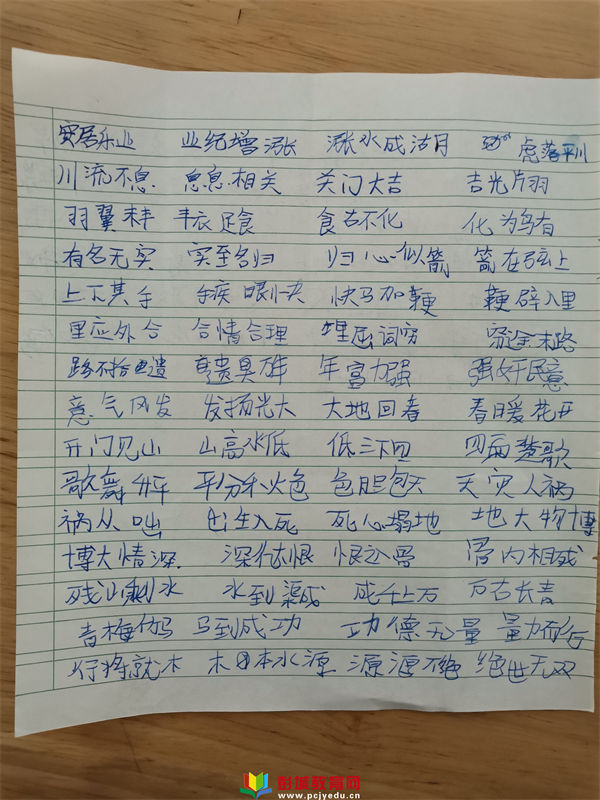 安居乐业 业纪增涨 涨水成沽月 虑落平川
川流不息 息息相关 关门大吉 吉光片羽
羽翼未丰 丰衣足食 食古不化 化为乌有
有名无实 实至名归 归心似箭 箭在弦上
上下其手 手疾眼快 快马加鞭 鞭辟入里
里应外合 合情合理 理屈词穷 穷途末路
路不拾遗 遗臭万年 年富力强 强奸民意
意气风发 发扬光大 大地回春 春暖花开
开门见山 山高水低 低三下四 四面楚歌
歌舞升平 平分秋色 色胆包天 天灾人祸
祸从 出生入死 死心塌地 地大物博
博大情深 深仇大恨 恨之入骨 骨肉相残
残山剩水 水到渠成 成千上万 万古长青
青梅竹马 马到成功 功德无量 量力而行
行将就木 木本水源 源源不绝 绝世无双
彭城教育网
www.pcjyedu.cn